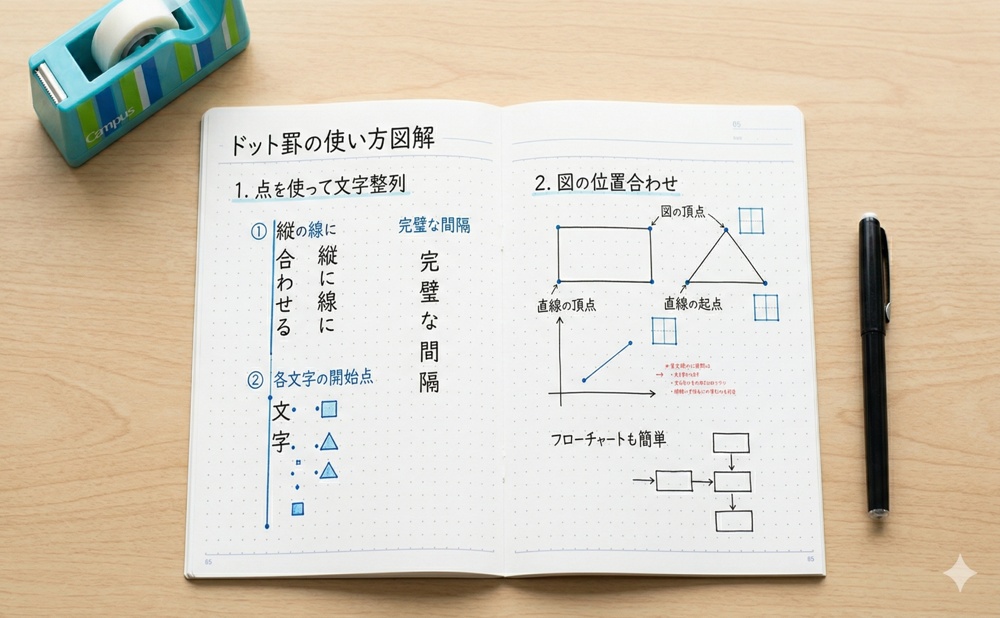 Campus
ドット罫の使い方図解
1. 点を使って文字整列
① 縦の線に
合わせる
縦に線に
完璧な間隔
完璧な間隔
② 各文字の開始点
文字
05
05
2. 図の位置合わせ
図の頂点
直線の頂点
直線の起点
フローチャートも簡単
05